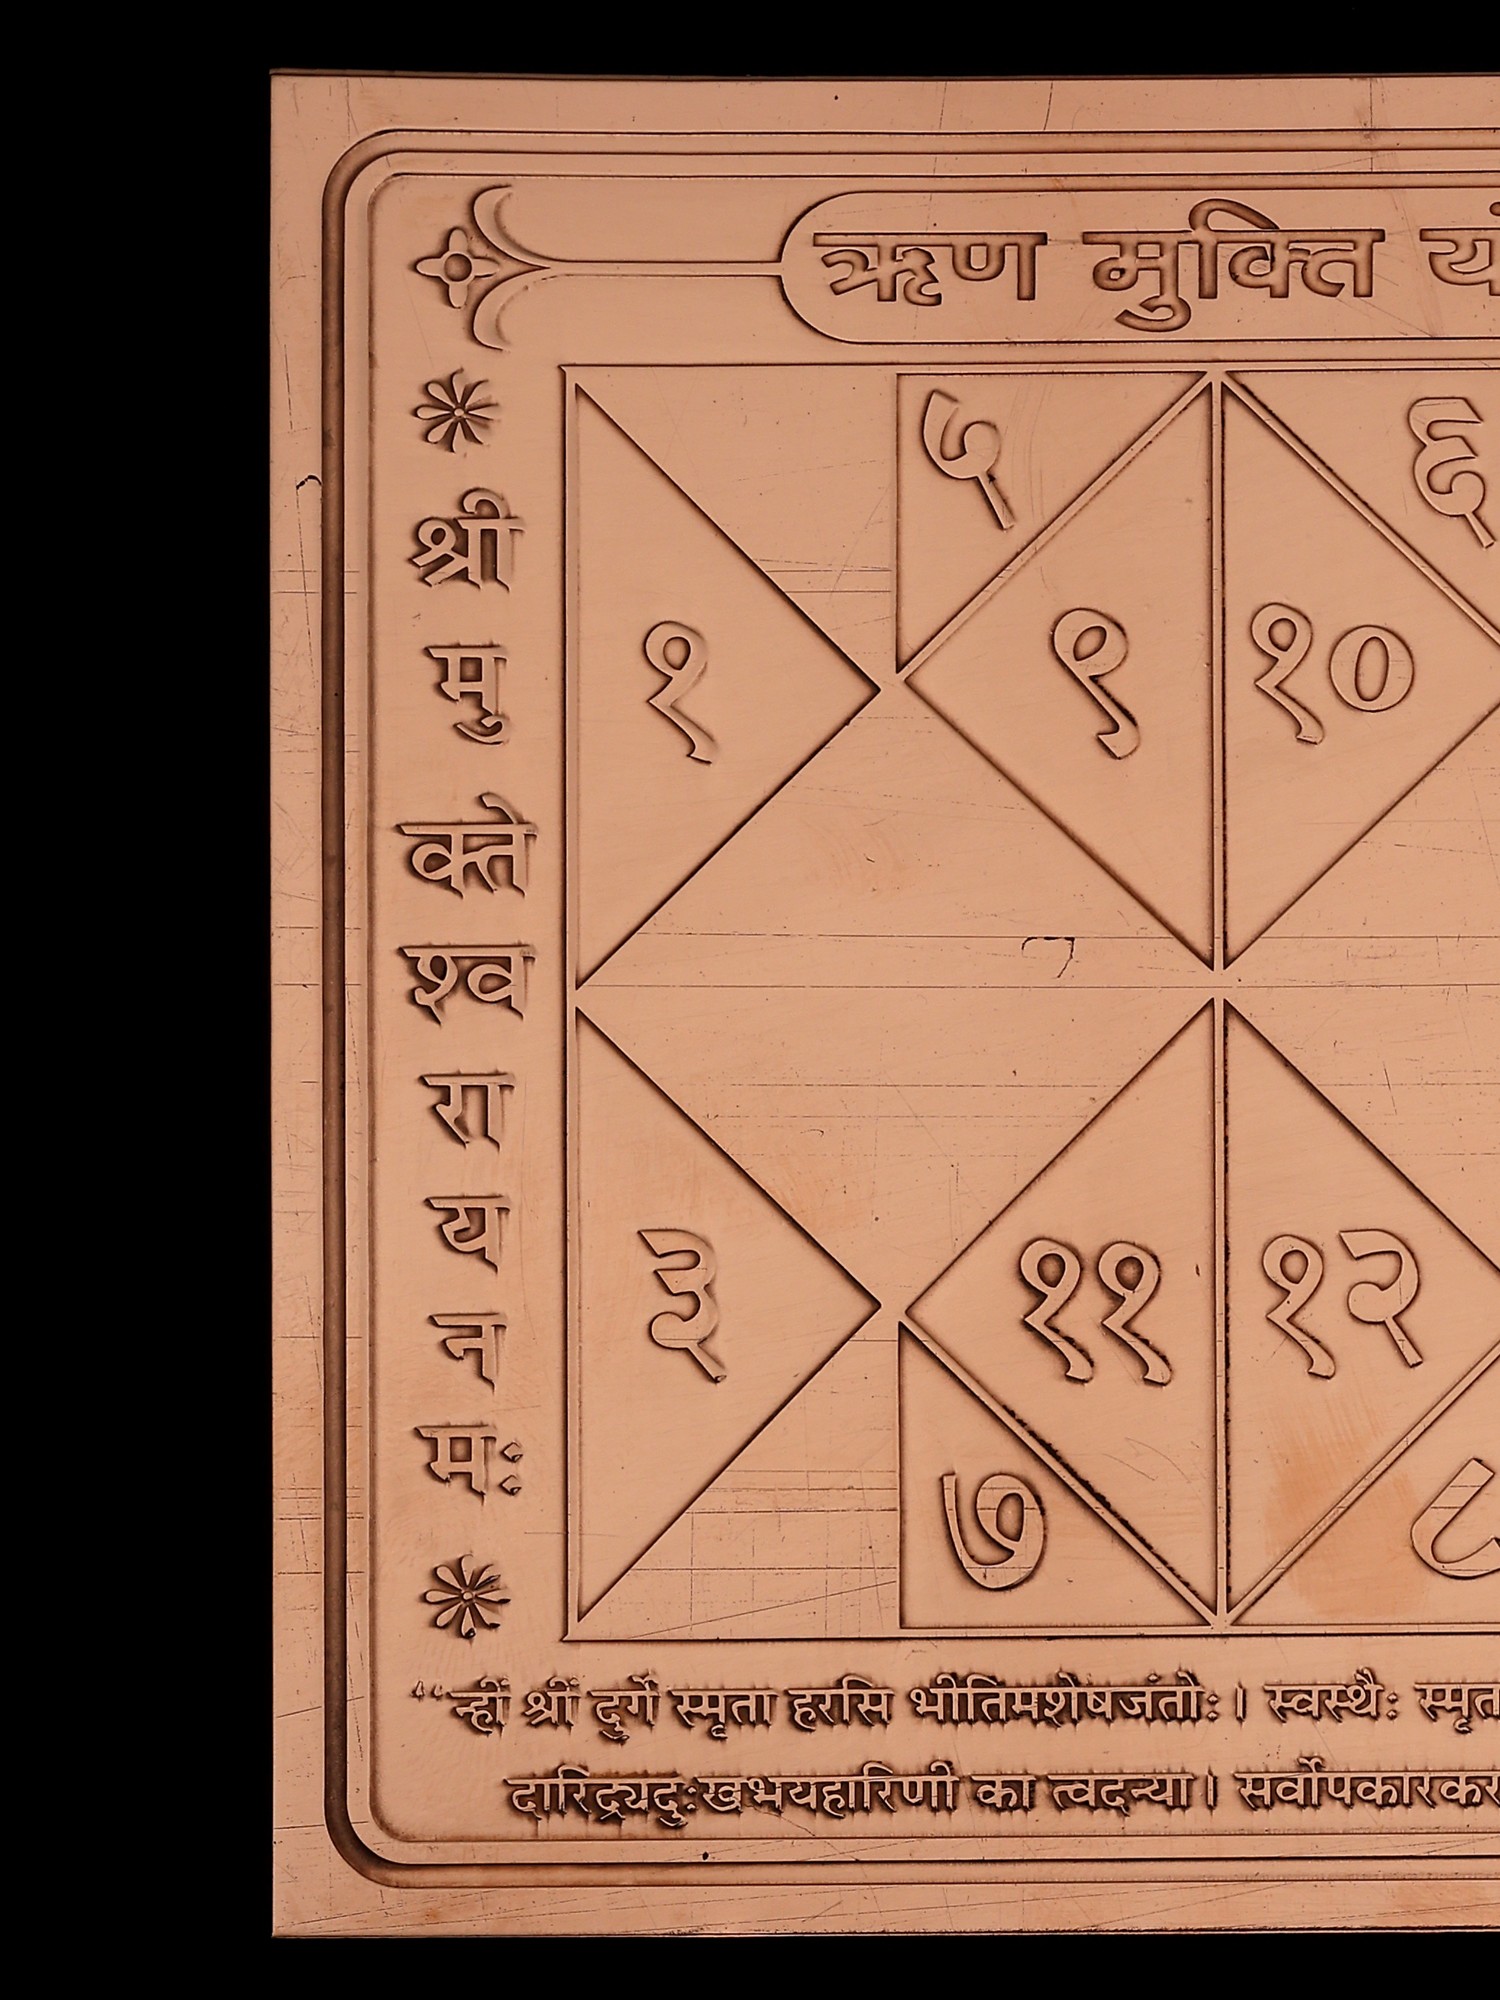 ऋण मुक्ति यं
५ ६
१ ९ १०
३ ११ १२
७ ८
श्री मु क्ते श्व रा य न मः
“न्हीं श्रीं दुर्गे स्मृता हरसि भीतिमशेषजंतोः। स्वस्थैः स्मृत
दारिद्र्यदुःखभयहारिणी का त्वदन्या। सर्वोपकारकर